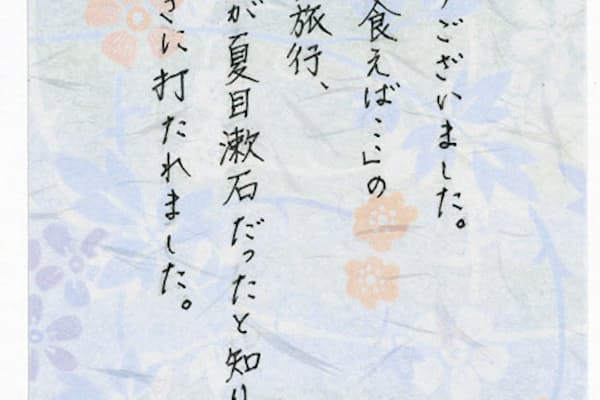 ございました。
食えば…」の
旅行、
が夏目漱石だったと知り
きに打たれました。